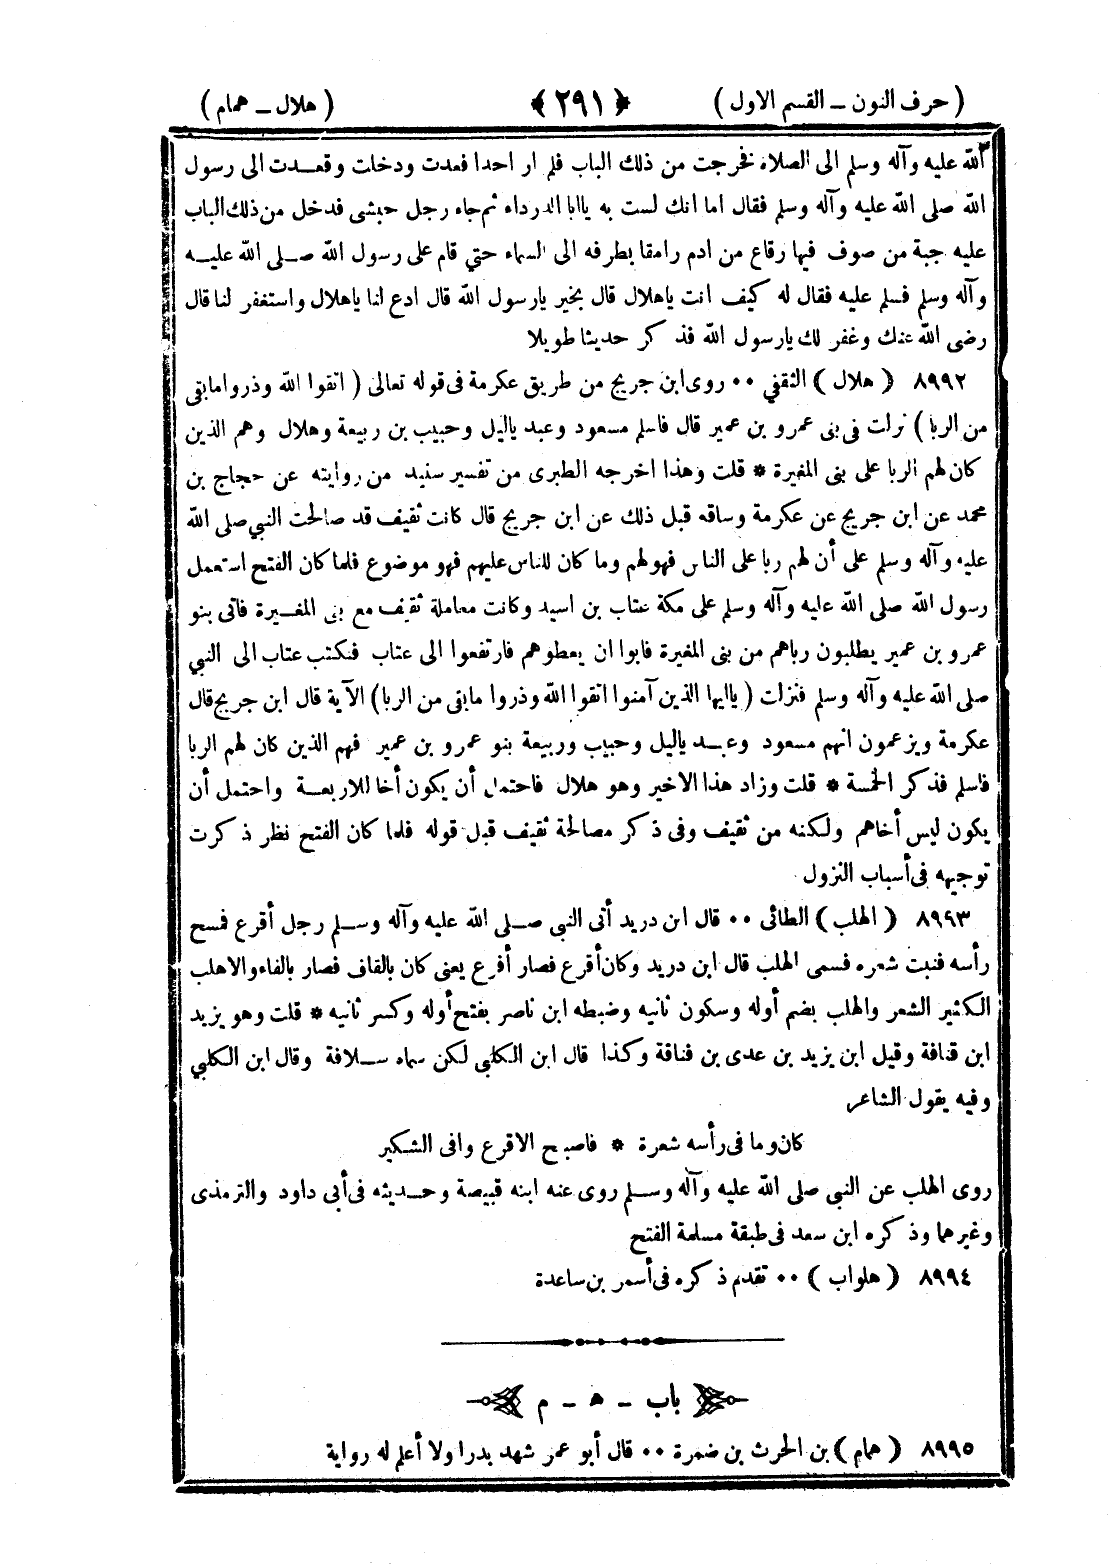 ( حرف النون ــ القسم الاول ) ﴿ ٢٩١ ﴾ ( هلال ــ همام )
الله عليه وآله وسلم الى الصلاة فخرجت من ذلك الباب فلم ار احدا فعدت ودخلت وقعدت الى رسول
الله صلى الله عليه وآله وسلم فقال اما انك لست به ياابا الدرداء ثم جاء رجل حبشى فدخل من ذلك الباب
عليه جبة من صوف فيها رقاع من ادم رامقا بطرفه الى السماء حتي قام على رسول الله صلى الله عليه
وآله وسلم فسلم عليه فقال له كيف انت ياهلال قال بخير يارسول الله قال ادع لنا ياهلال واستغفر لنا قال
رضى الله عنك وغفر لك يارسول الله فذكر حديثا طويلا
٨٩٩٢ ( هلال ) الثقفي ٠٠ روى ابن جريج من طريق عكرمة فى قوله تعالى ( اتقوا الله وذروا مابقى
من الربا ) نزلت فى بنى عمرو بن عمير قال فاسلم مسعود وعبد ياليل وحبيب بن ربيعة وهلال وهم الذين
كان لهم الربا على بنى المغيرة * قلت وهذا اخرجه الطبرى من تفسير سنيد من روايته عن حجاج بن
محمد عن ابن جريج عن عكرمة وساقه قبل ذلك عن ابن جريج قال كانت ثقيف قد صالحت النبي صلى الله
عليه وآله وسلم على أن لهم ربا على الناس فهو لهم وما كان للناس عليهم فهو موضوع فلما كان الفتح استعمل
رسول الله صلى الله عليه وآله وسلم على مكة عتاب بن اسيد وكانت معاملة ثقيف مع بنى المغيرة فاتى بنو
عمرو بن عمير يطلبون رباهم من بنى المغيرة فابوا ان يعطوهم فارتفعوا الى عتاب فكتب عتاب الى النبي
صلى الله عليه وآله وسلم فنزلت ( ياايها الذين آمنوا اتقوا الله وذروا مابقى من الربا ) الآية قال ابن جريج قال
عكرمة ويزعمون انهم مسعود وعبد ياليل وحبيب وربيعة بنو عمرو بن عمير فهم الذين كان لهم الربا
فاسلم فذكر الخمسة * قلت وزاد هذا الاخير وهو هلال فاحتمل أن يكون أخا للاربعة واحتمل أن
يكون ليس أخاهم ولكنه من ثقيف وفى ذكر مصالحة ثقيف قبل قوله فلما كان الفتح نظر ذكرت
توجيهه فى أسباب النزول
٨٩٩٣ ( الهلب ) الطائى ٠٠ قال ابن دريد أتى النبي صلى الله عليه وآله وسلم رجل أقرع فمسح
رأسه فنبت شعره فسمى الهلب قال ابن دريد وكان أقرع فصار أفرع يعنى كان بالقاف فصار بالفاء والاهلب
الكثير الشعر والهلب بضم أوله وسكون ثانيه وضبطه ابن ناصر بفتح أوله وكسر ثانيه * قلت وهو يزيد
ابن قنافة وقيل ابن يزيد بن عدى بن قنافة وكذا قال ابن الكلبي لكن سماه سلافة وقال ابن الكلبي
وفيه يقول الشاعر
كان وما فى رأسه شعرة * فاصبح الاقرع وافى الشكير
روى الهلب عن النبي صلى الله عليه وآله وسلم روى عنه ابنه قبيصة وحديثه فى أبى داود والترمذى
وغيرهما وذكره ابن سعد فى طبقة مسلمة الفتح
٨٩٩٤ ( هلواب ) ٠٠ تقدم ذكره فى أسمر بن ساعدة
باب - ه - م
٨٩٩٥ ( همام ) بن الحرث بن ضمرة ٠٠ قال أبو عمر شهد بدرا ولا أعلم له رواية